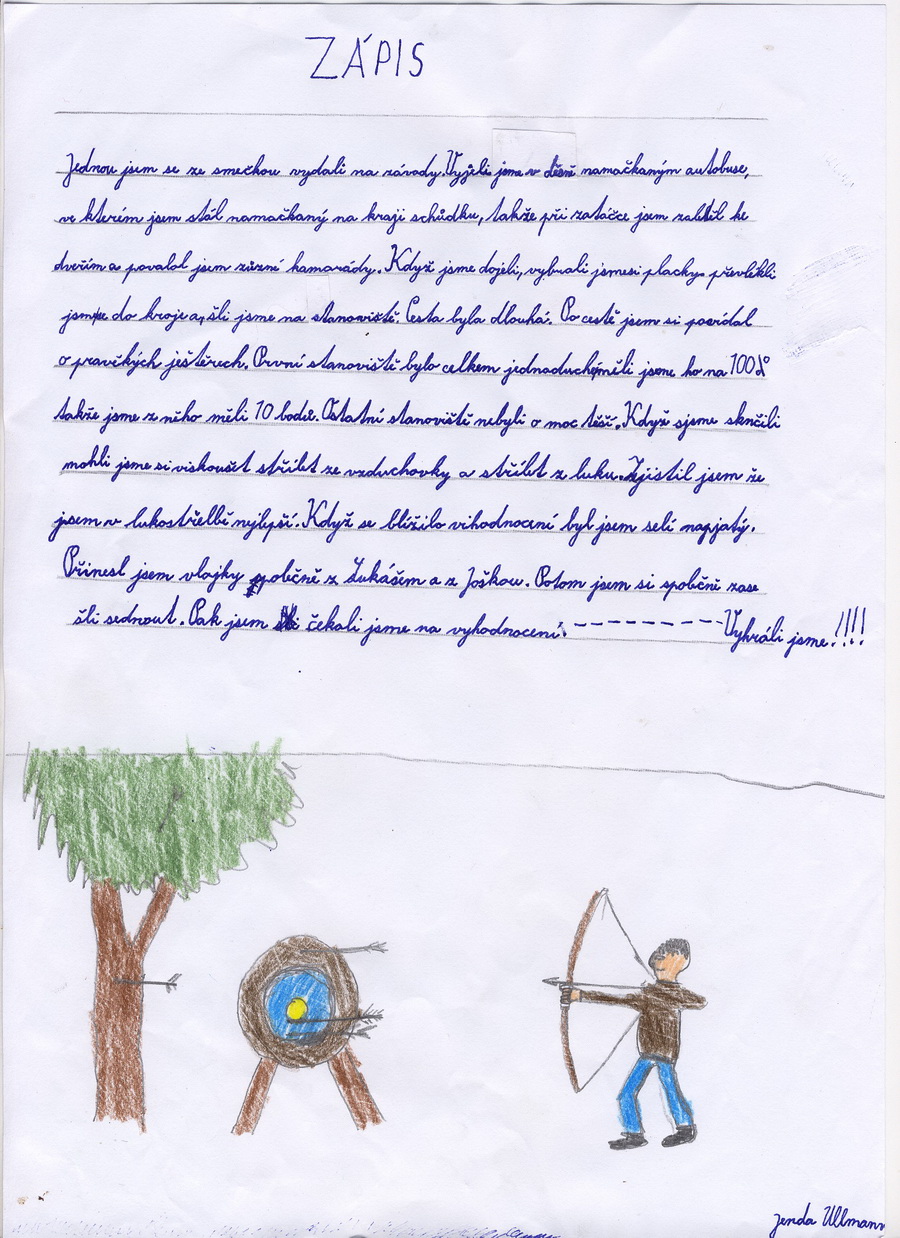 ZÁPIS
Jednou jsem se ze smečkou vydali na závody. Vyjeli jsme v děsně namačkaným autobuse,
ve kterém jsem stál namačkaný na kraji schůdku, takže při zatáčce jsem zaletěl ke
dveřím a povalol jsem různé kamarády. Když jsme dojeli, vybrali jsme si placky převlékli
jsme do kroje a, šli jsme na stanoviště. Cesta byla dlouhá. Po cestě jsem si povídal
o pravěkých ještěrech. První stanoviště bylo celkem jednaduché, měli jsme ho na 100%
takže jsme z něho měli 10 bodů. Ostatní stanoviště nebyli o moc těší. Když sjsme sknčili
mohli jsme si viskoušet střílet ze vzduchovky a střílet z luku. Zjistil jsem že
jsem v lukostřelbě nejlepší. Když se blížilo vihodnocení byl jsem selí napjatý.
Přinesl jsem vlajky spolěčně z Lukášem a z Joškou. Potom jsem si spolěčně zase
šli sednout. Pak jsem čekali jsme na vyhodnocení. ---------- Vyhráli jsme!!!!
Jenda Ullmann